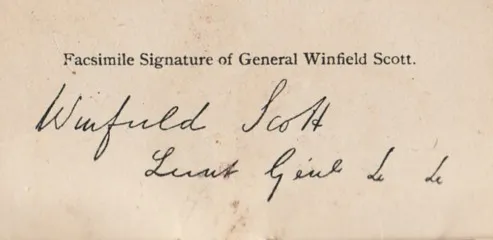 Facsimile Signature of General Winfield Scott.
Winfield Scott
Lieut Genl